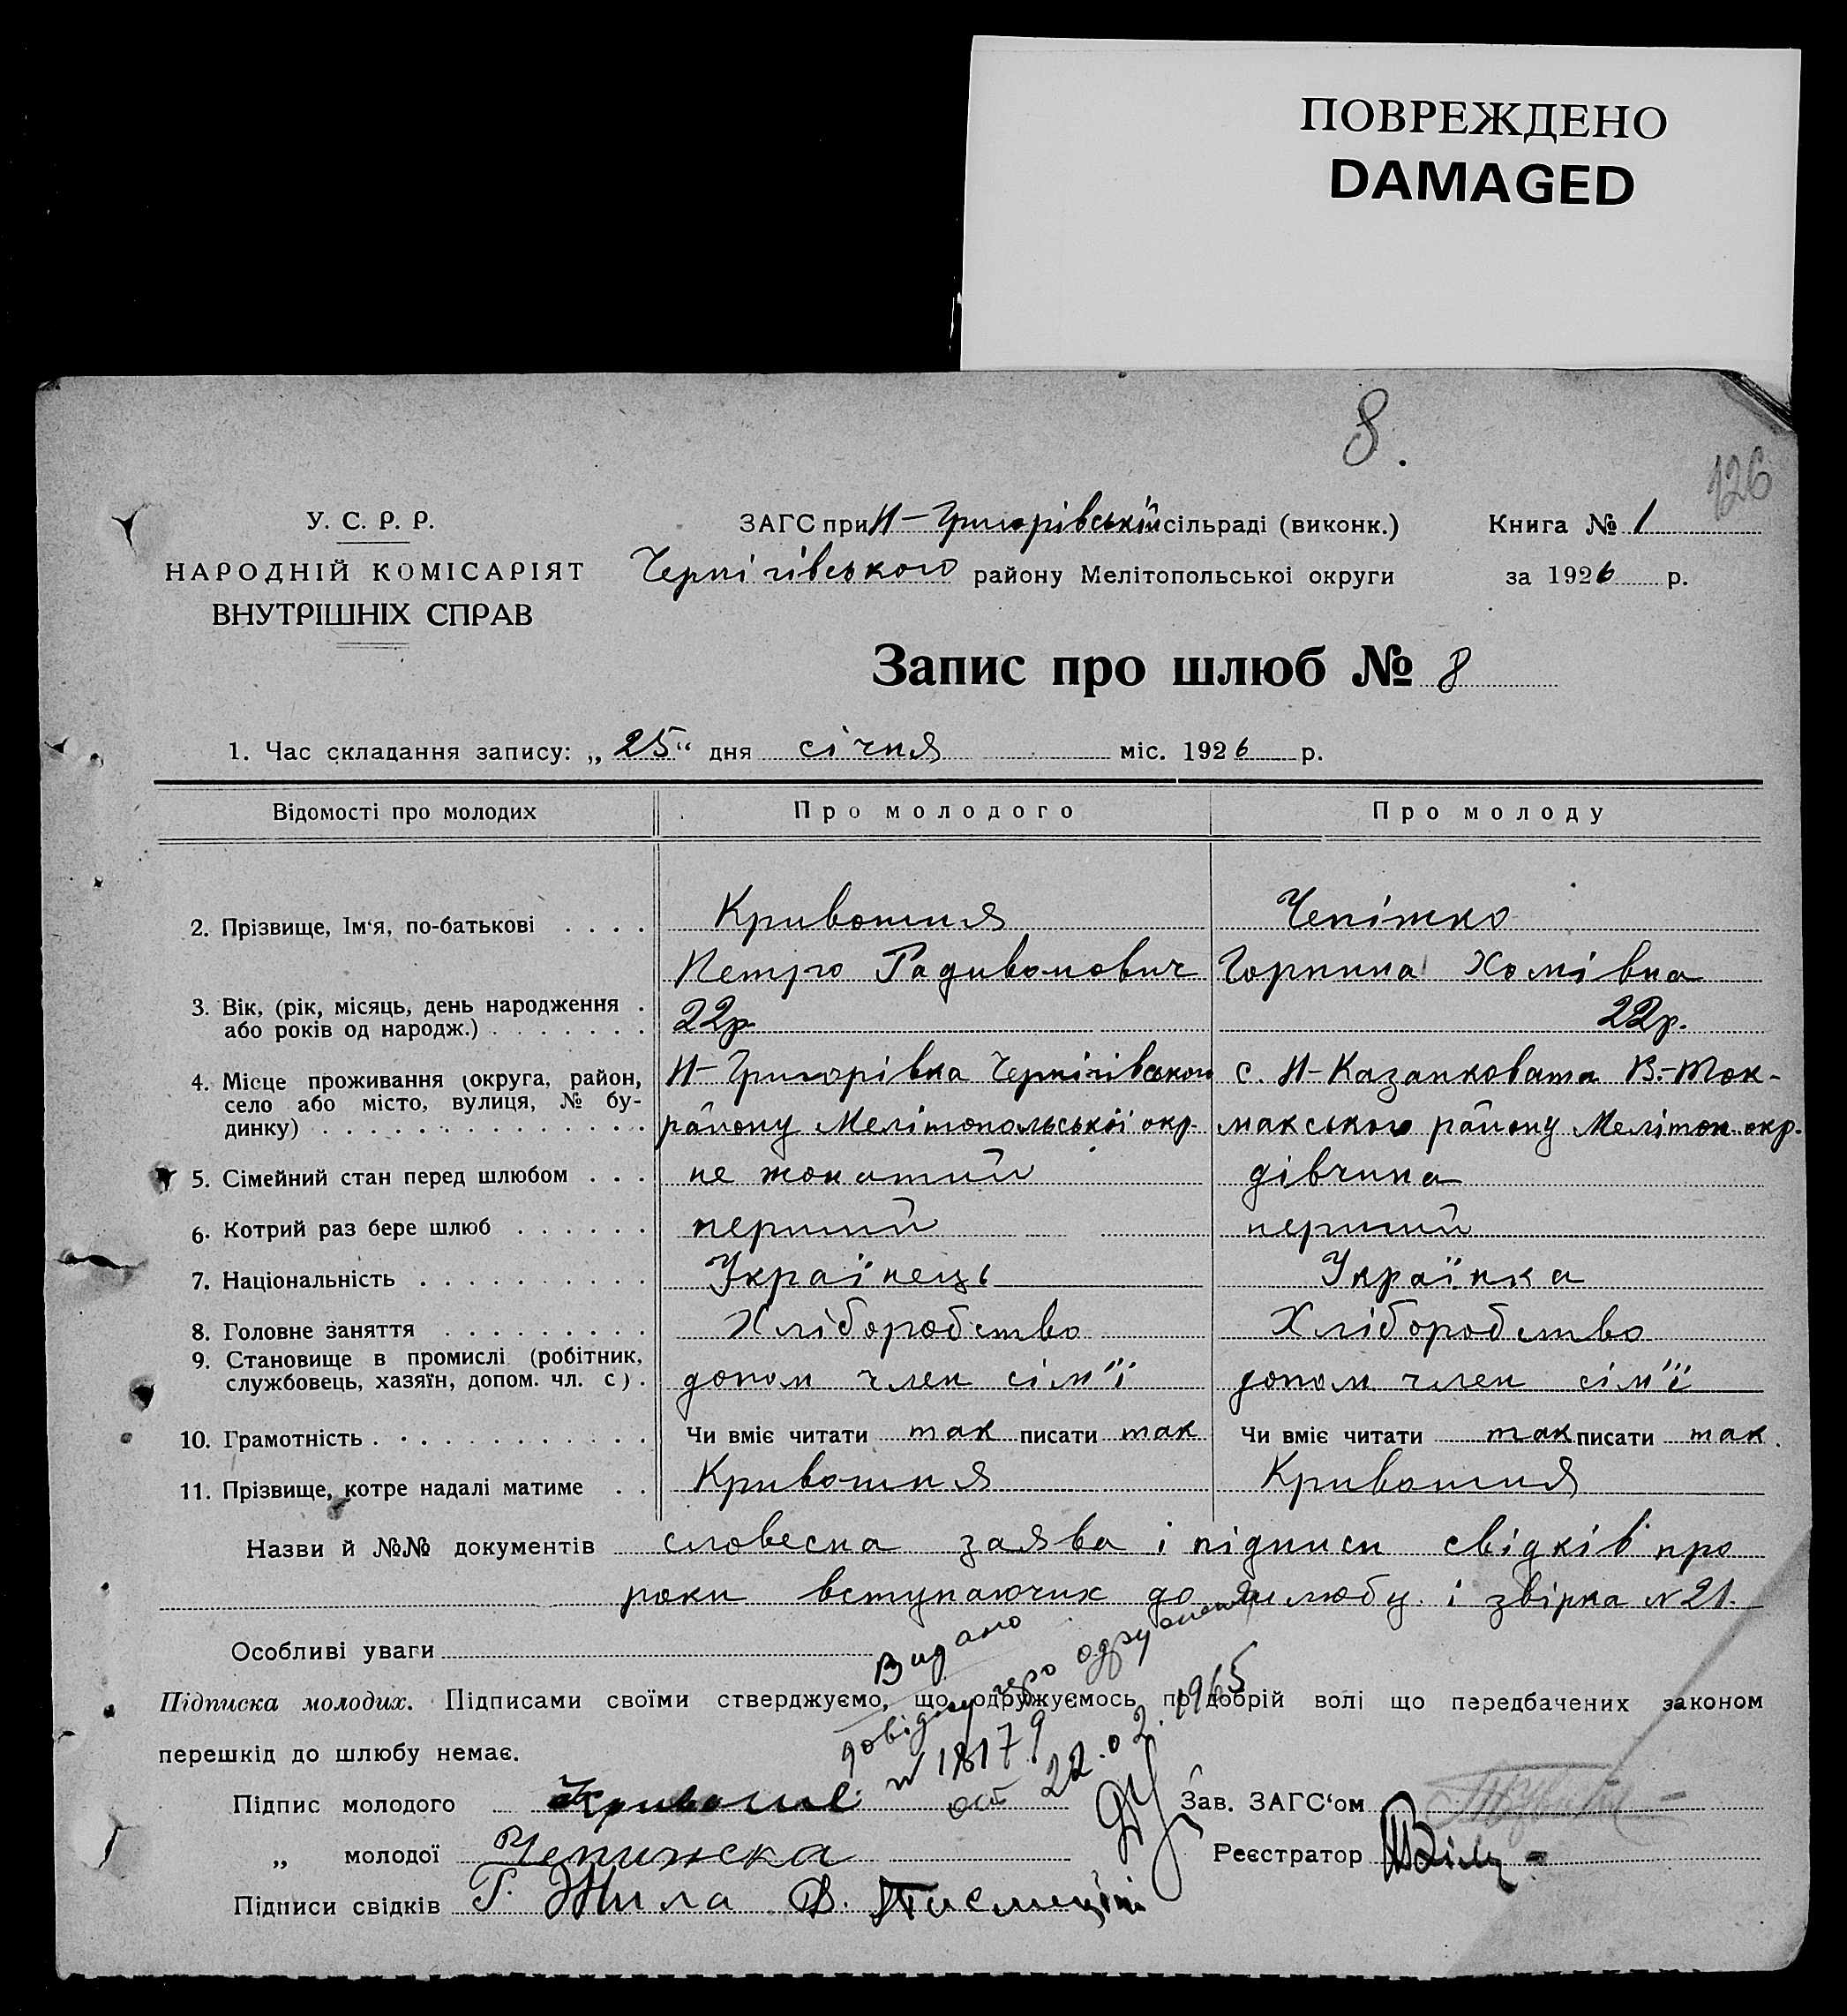 ПОВРЕЖДЕНО
DAMAGED
8.
126
У. С. Р. Р.
НАРОДНІЙ КОМІСАРІЯТ
ВНУТРІШНІХ СПРАВ
ЗАГС при Н-Григорівській сільраді (виконк.)
Чернігівського району Мелітопольськоі округи
Книга № 1
за 1926 р.
Запис про шлюб № 8
1. Час складання запису: „25" дня січня міс. 1926 р.
Відомості про молодих Про молодого Про молоду
2. Прізвище, Ім'я, по-батькові . . . . Кривошия Чепіжко
Петро Радивонович Горпина Хомівна
3. Вік, (рік, місяць, день народження . або років од народж.) . . . . . . . 22р. 22р.
4. Місце проживання (округа, район, Н-Григорівка Чернігівського с. Н-Казанковата В.-Ток-
село або місто, вулиця, № бу-
динку) . . . . . . . . . . . . . . району Мелітопольської окр. макського району Мелітоп. окр.
5. Сімейний стан перед шлюбом . . . не жонатий дівчина
6. Котрий раз бере шлюб . . . . . . перший перший
7. Національність . . . . . . . . . . Українець Українка
8. Головне заняття . . . . . . . . . Хліборобство Хліборобство
9. Становище в промислі (робітник,
службовець, хазяїн, допом. чл. с) . допом член сім'ї допом член сім'ї
10. Грамотність . . . . . . . . . . . . Чи вміє читати так писати так Чи вміє читати так писати так.
11. Прізвище, котре надалі матиме . . Кривошия Кривошия
Назви й №№ документів словесна заява і підписи свідків про
роки вступаючих до шлюбу і звірка N 21.
Особливі уваги
Видано
довідку про одруження
N 18179
от 22.02.1965
Підписка молодих. Підписами своїми стверджуємо, що одружуємось по добрій волі що передбачених законом
перешкід до шлюбу немає.
Підпис молодого Зав. ЗАГС'ом
„ молодої Чепижска Реєстратор
Підписи свідків Г. Жила В.